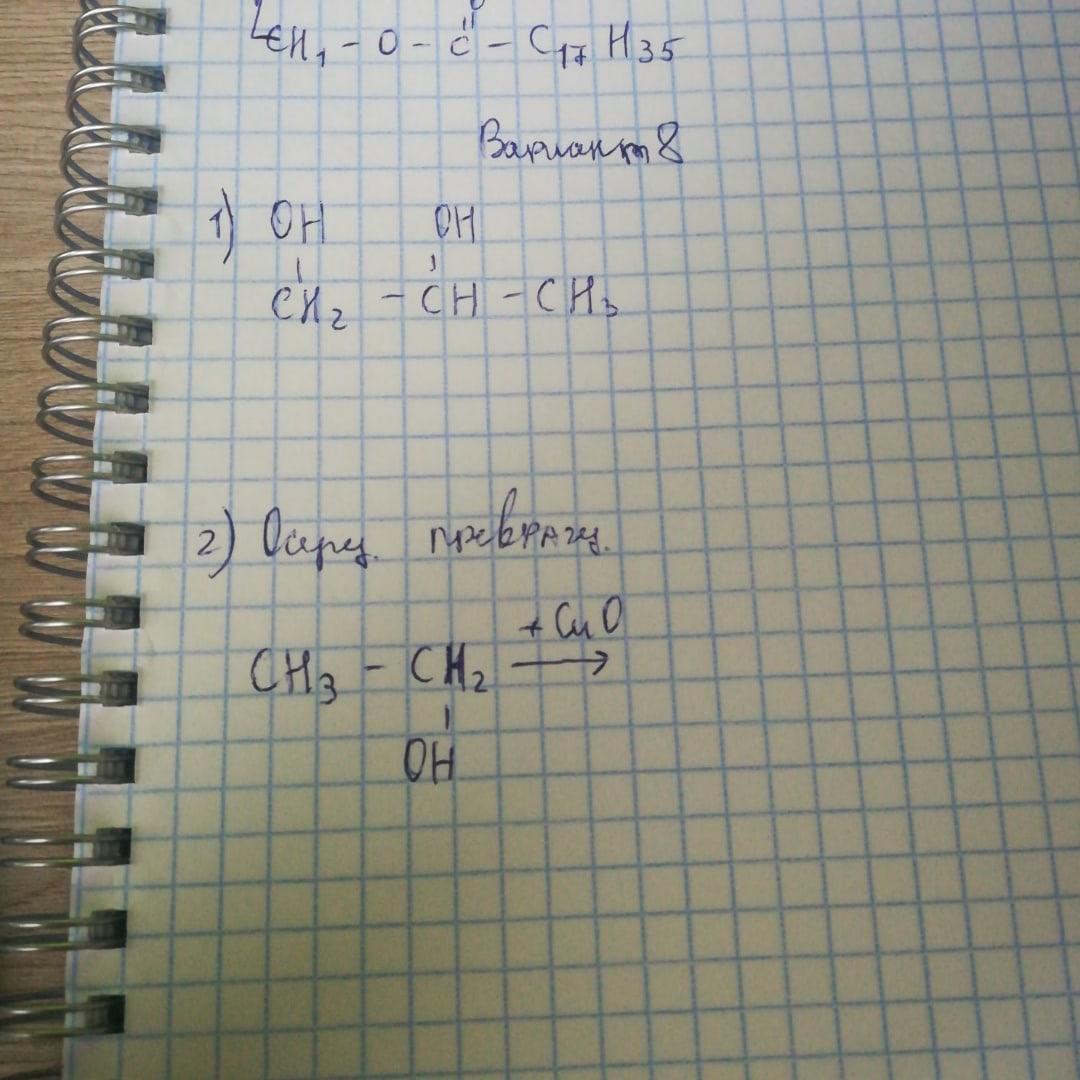 CH₁ - O - C - C₁₇H₃₅
Вариант 8
1) OH OH
CH₂ - CH - CH₃
2) Осущ. превращ.
+ CuO
CH₃ - CH₂ →
OH